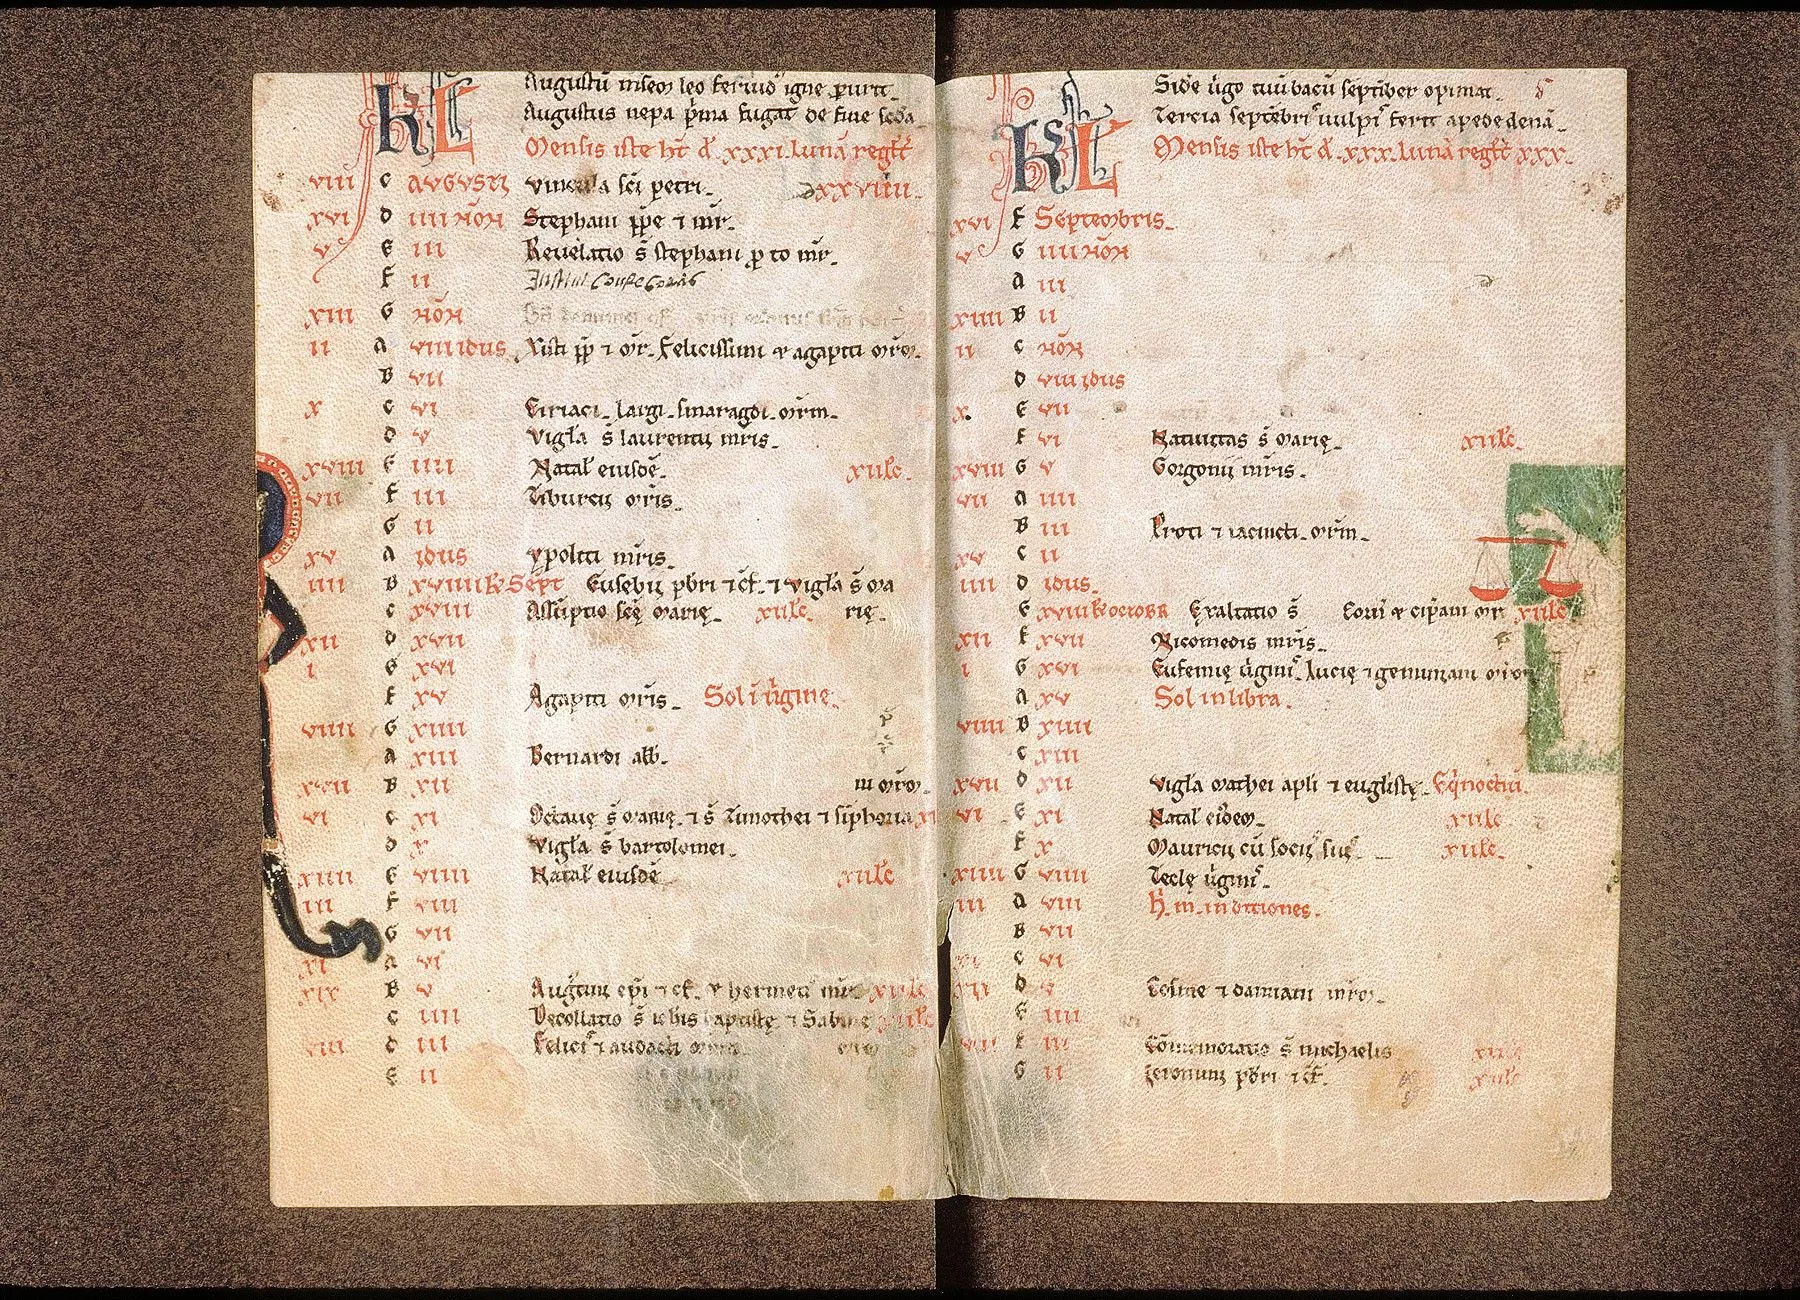 Augustū mensem leo fervid' igne purit.
Augustus nepa p̄ma fugat de fine scd̄a
KL Mensis iste ħt d' xxxi. Lunā regl̄r
viii c AVGVSTI vincula sc̄i petri. xxviiii.
xvi D iiii NON Stephani pp̄e ⁊ m̄r.
v E iii Revelatio s̄ stephani p̄to m̄r.
F ii
xiii G NON
ii a viii idus Xisti pp̄ ⁊ m̄r. Felicissimi & agapiti m̄rm.
B vii
x c vi Ciriaci. largi. smaragdi. m̄rm.
D v vigl̄a s̄ laurentij m̄ris.
xviii E iiii Natal̄ eiusdē. xii lc̄.
vii F iii Tiburcij m̄ris.
G ii
xv a idus ypoliti m̄ris.
iiii B xviiii kl̄ Sept Eusebij pbr̄i ⁊ cf̄. ⁊ vigl̄a s̄ ma
c xviii Assūptio scē marię. xii lc̄. rię.
xii D xvii
i E xvi
F xv Agapiti m̄ris. Sol ī v̄gine.
viiii G xiiii
a xiii Bernardi abb̄.
xvii B xii ni m̄rm.
vi c xi Octavę s̄ marię. ⁊ s̄ Timothei ⁊ siphoria
D x vigl̄a s̄ bartolomei.
xiiii E viiii Natal̄ eiusdē xii lc̄
iii F viii
G vii
xi a vi
xix B v Augustini ep̄i ⁊ cf̄. & hermetis m̄r xii lc̄
c iiii Decollatio s̄ iohis baptistę ⁊ Sabine xii lc̄
viii D iii Felicis ⁊ audacti
E ii
Side v̄go septēber opimat.
Tercia septēbris vulpis ferit a pede denā.
KL Mensis iste ħt d. xxx. Lunā regl̄r xxx.
xvi F Septembris.
v G iiii NON
a iii
xiiii B ii
ii c NON
D viii idus
x. E vii
F vi Nativitas s̄ marię. xii lc̄.
xviii G v Gorgonij m̄ris.
vii a iiii
B iii Proti ⁊ iacincti. m̄rm.
xv c ii
iiii D idus.
E xviii kl̄ OCTOBR Exaltatio s̄ Corn̄ & cip̄ani m̄r xii lc̄
xii F xvii Nicomedis m̄ris.
i G xvi Eufemię v̄ginis. Lucię ⁊ geminiani m̄rm
a xv Sol in libra.
viiii B xiiii
c xiii
xvii D xii vigl̄a mathei apl̄i ⁊ evgl̄istę. Eq̄noctiū.
vi E xi Natal̄ eiusdem. xii lc̄
F x Mauricij cū socijs suis. xii lc̄.
xiiii G viiii Teclę v̄ginis.
iii a viii
B vii
xi c vi
D v Cosme ⁊ damiani m̄rm.
E iiii
F iii Cōmemoratio s̄ michaelis xii lc̄
G ii Ieronimi pbr̄i ⁊ cf̄. xii lc̄